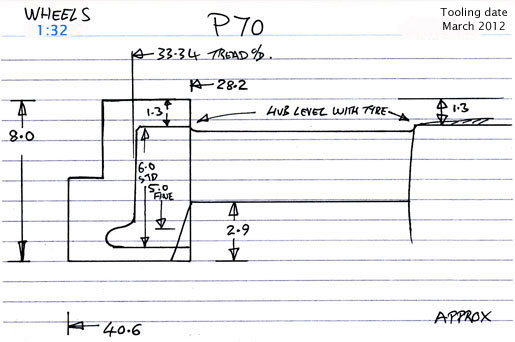 WHEELS
1:32
P70
Tooling date
March 2012
33.34 TREAD %D.
28.2
1.3
HUB LEVEL WITH TYRE
1.3
8.0
6.0
STD
5.0
FINE
2.9
40.6
APPROX